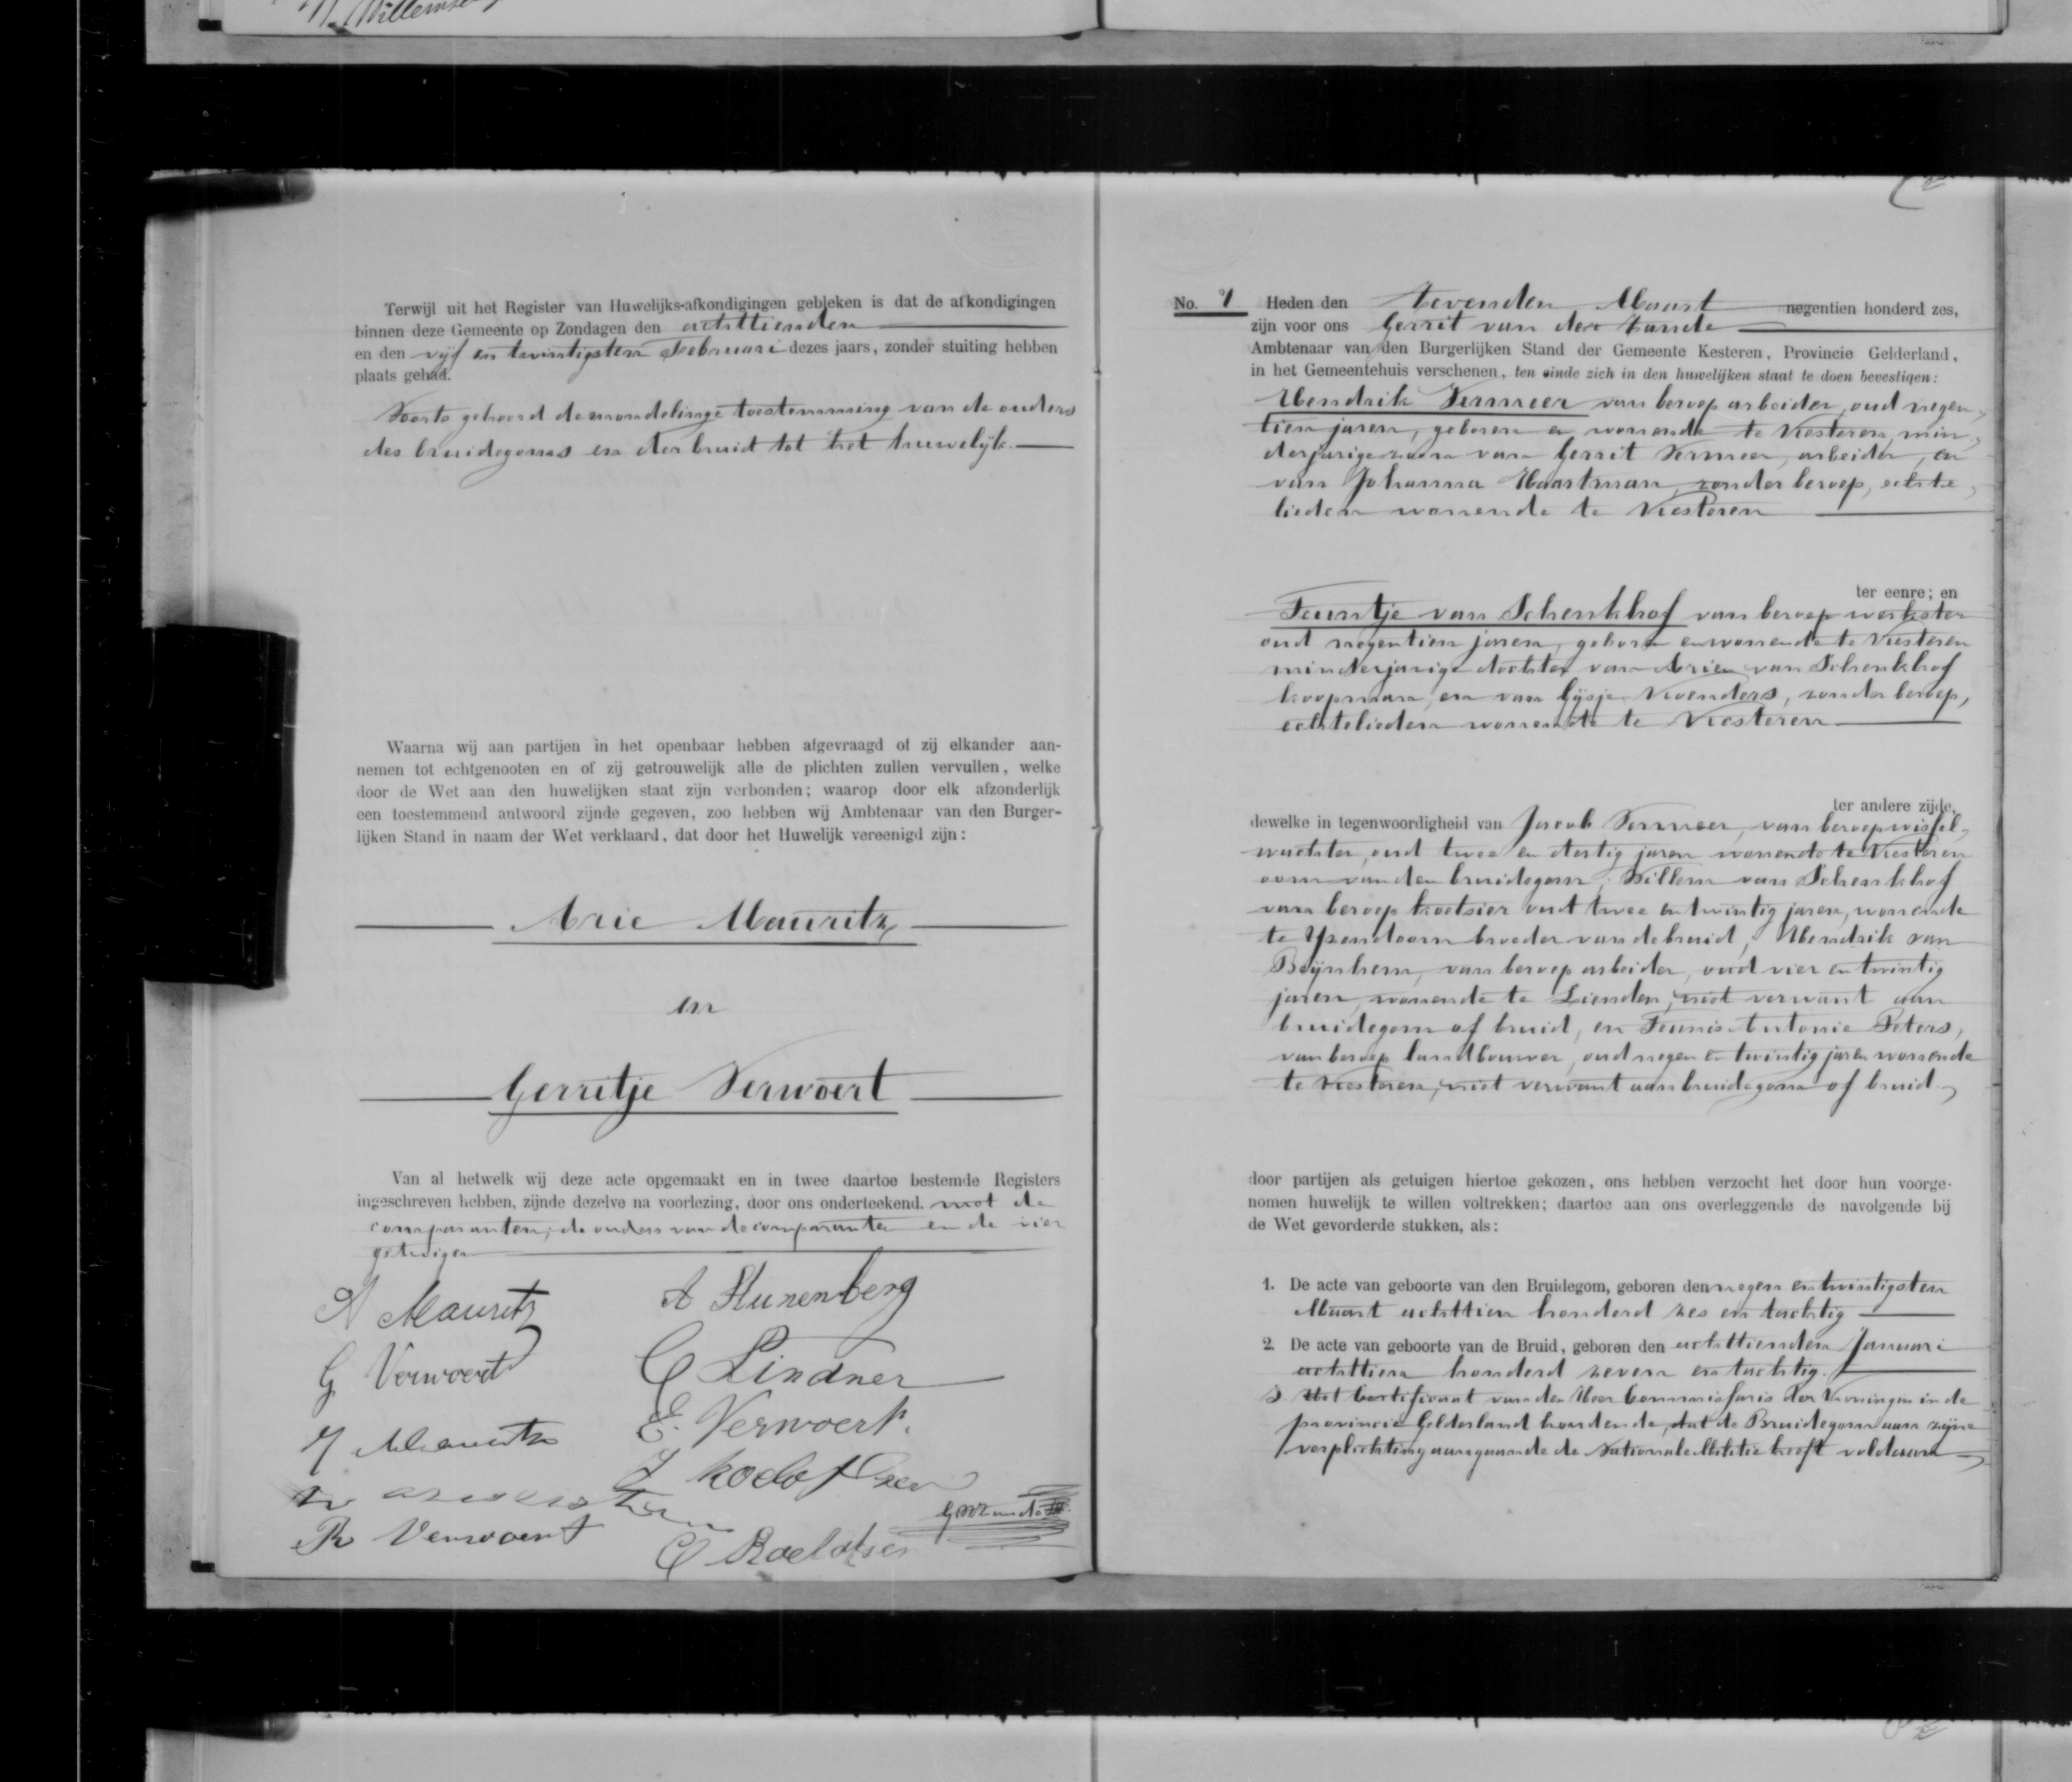 Willems
Terwijl uit het Register van Huwelijks-afkondigingen gebleken is dat de afkondigingen
binnen deze Gemeente op Zondagen den achttienden
en den vijf en twintigsten Februari dezes jaars, zonder stuiting hebben
plaats gehad.
Voorts gehoord de mondelinge toestemming van de ouders
des bruidegoms en der bruid tot het huwelijk.
Waarna wij aan partijen in het openbaar hebben afgevraagd of zij elkander aan-
nemen tot echtgenooten en of zij getrouwelijk alle de plichten zullen vervullen, welke
door de Wet aan den huwelijken staat zijn verbonden; waarop door elk afzonderlijk
een toestemmend antwoord zijnde gegeven, zoo hebben wij Ambtenaar van den Burger-
lijken Stand in naam der Wet verklaard, dat door het Huwelijk vereenigd zijn:
Arie Mauritz
en
Gerritje Verwoert
Van al hetwelk wij deze acte opgemaakt en in twee daartoe bestemde Registers
ingeschreven hebben, zijnde dezelve na voorlezing, door ons onderteekend. met de
comparanten, de ouders van de comparanten en de vier
getuigen
A Mauritz
A Stunenberg
G Verwoert
C Lindner
J Mauritz
E. Verwoert.
J Roelofsen
R Verwoert
C Roelofsen
GvdZande
No. 7 Heden den zevenden Maart negentien honderd zes,
zijn voor ons Gerrit van der Zande
Ambtenaar van den Burgerlijken Stand der Gemeente Kesteren, Provincie Gelderland,
in het Gemeentehuis verschenen, ten einde zich in den huwelijken staat te doen bevestigen:
Hendrik Vermeer van beroep arbeider, oud negen-
tien jaren, geboren en wonende te Kesteren, min-
derjarige zoon van Gerrit Vermeer, arbeider, en
van Johanna Haartman, zonder beroep, echte-
lieden wonende te Kesteren
ter eenre; en
Teuntje van Schenkhof van beroep werkster
oud negentien jaren, geboren en wonende te Kesteren
minderjarige dochter van Arien van Schenkhof
koopman, en van Gijsje Koenders, zonder beroep,
echtelieden wonende te Kesteren
ter andere zijde,
dewelke in tegenwoordigheid van Jacob Vermeer, van beroep wissel-
wachter, oud twee en dertig jaren wonende te Kesteren
oom van den bruidegom, Willem van Schenkhof
van beroep koetsier oud twee en twintig jaren, wonende
te IJzendoorn broeder van de bruid, Hendrik van
Beijnhem, van beroep arbeider, oud vier en twintig
jaren, wonende te Lienden, niet verwant aan
bruidegom of bruid, en Teunis Antonie Peters,
van beroep landbouwer, oud negen en twintig jaren wonende
te Kesteren, niet verwant aan bruidegom of bruid.
door partijen als getuigen hiertoe gekozen, ons hebben verzocht het door hun voorge-
nomen huwelijk te willen voltrekken; daartoe aan ons overleggende de navolgende bij
de Wet gevorderde stukken, als:
1. De acte van geboorte van den Bruidegom, geboren den negen en twintigsten
Maart achttien honderd zes en tachtig
2. De acte van geboorte van de Bruid, geboren den achttienden Januari
achttien honderd zeven en tachtig.
3. Het Certificaat van den Heer Commissaris der Koningin in de
provincie Gelderland houdende, dat de Bruidegom aan zijne
verplichting aangaande de Nationale Militie heeft voldaan